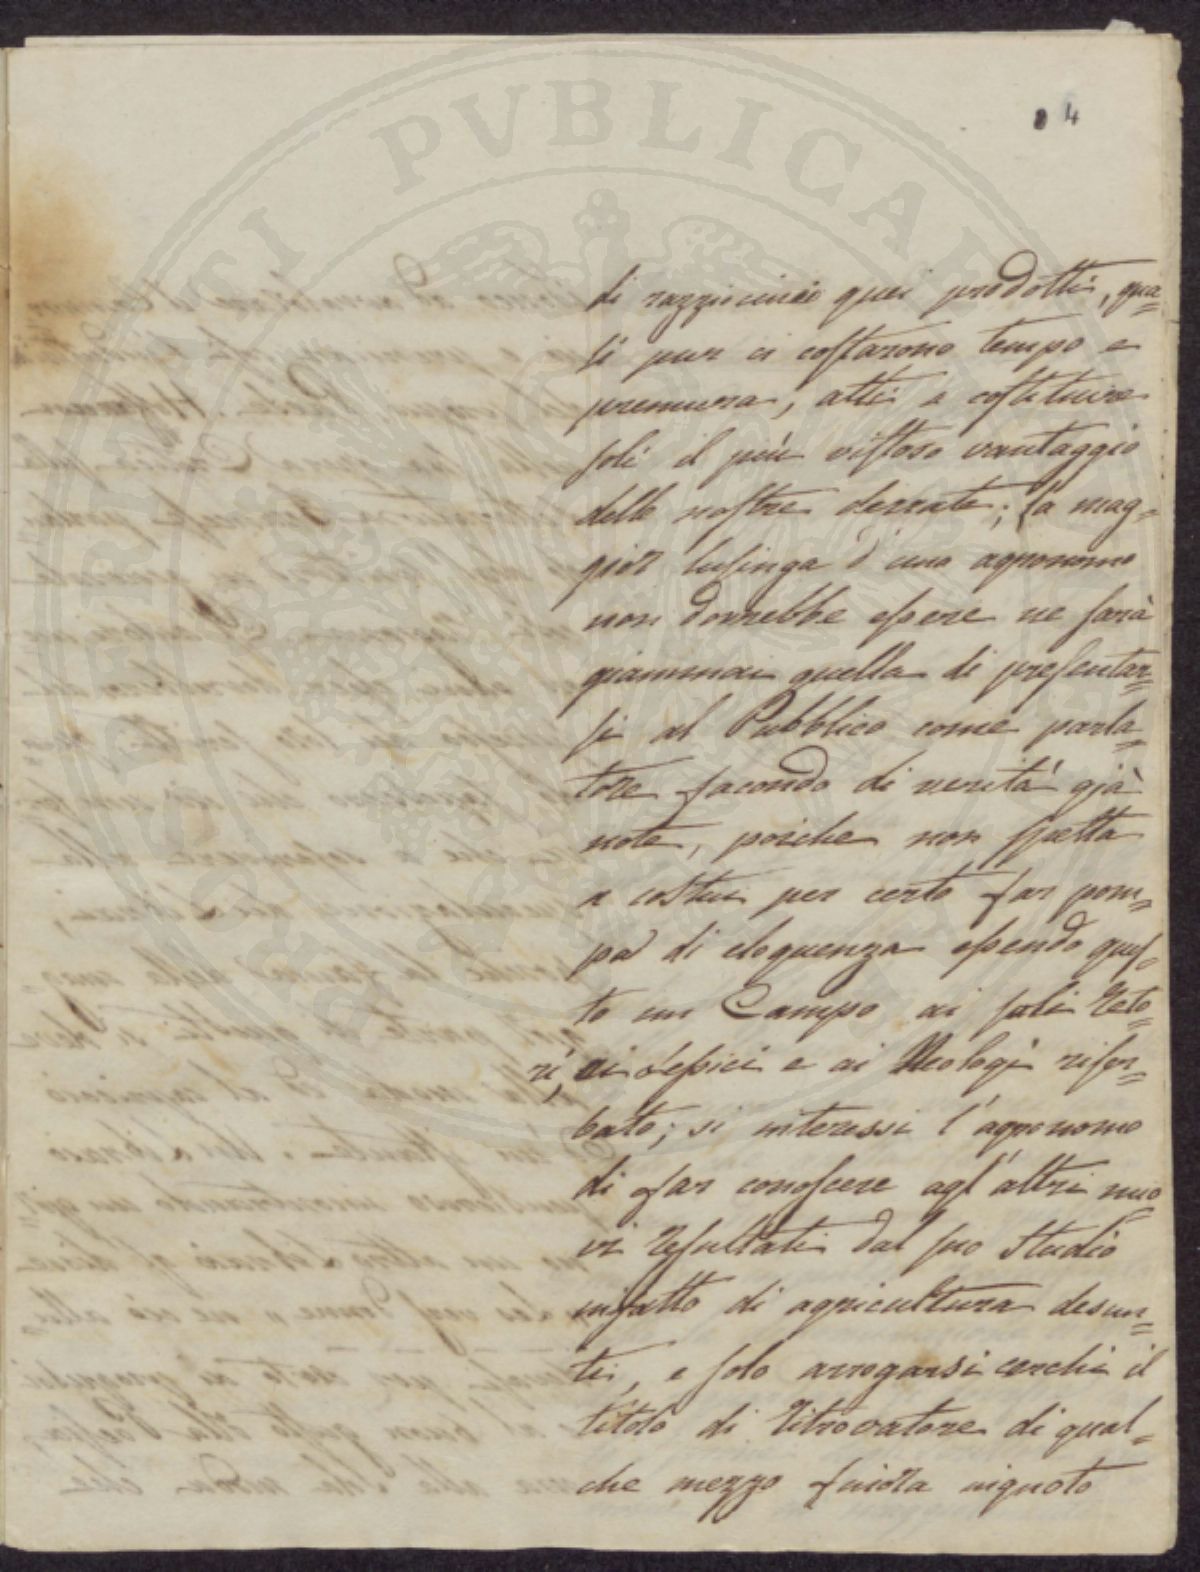 PRINTI PVBLICAE PRO
4
di razziocinio quei prodotti, qua=
li pur ci costarono tempo e
premura, atti a costituire
soli il più vistoso vantaggio
delle nostre derrate; la mag=
gior lusinga d'uno agronomo
non dovrebbe essere ne sarà
giammai quella di presentar=
si al Pubblico come parla=
tore facondo di verità già
note, poiche non spetta
a costui per certo far pom=
pa di eloquenza essendo ques=
to un Campo ai soli Reto=
ri, ai Lessici e ai Neologi riser=
bato; si interessi l'agronomo
di far conoscere agl'altri nuo=
vi resultati dal suo studio
in fatto di agricultura desun=
ti, e solo arrogarsi cerchi il
titolo di ritrovatore di qual=
che mezzo finora ignoto